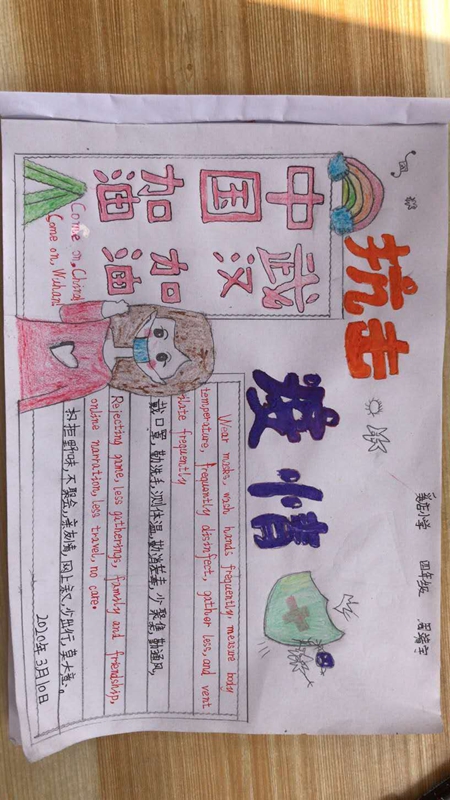 小学 四年级
抗击
疫情
中国加油
武汉加油
Come on, China!
Come on, Wuhan!
Wear masks, wash hands frequently, measure body
temperature, frequently disinfect, gather less, and vent
ilate frequently
戴口罩,勤洗手,测体温,勤消毒,少聚集,勤通风,
Rejecting game, less gatherings, family and friendship,
online narration, less travel, no care.
拒野味,不聚会,亲友情,网上叙,少出行,莫大意。
2020年3月10日